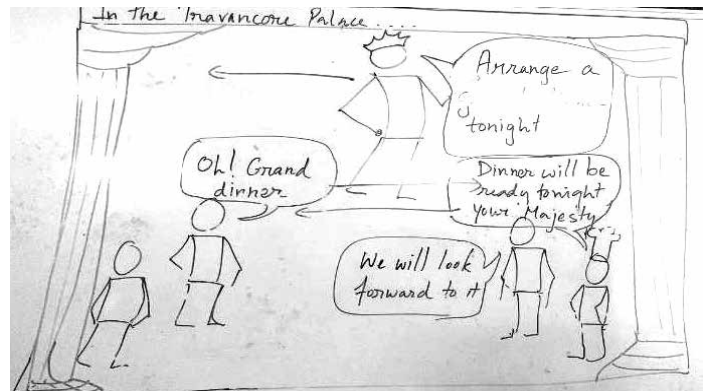 In the Travancore Palace ....
Arrange a
tonight
Oh! Grand
dinner
Dinner will be
ready tonight
your Majesty
We will look
forward to it